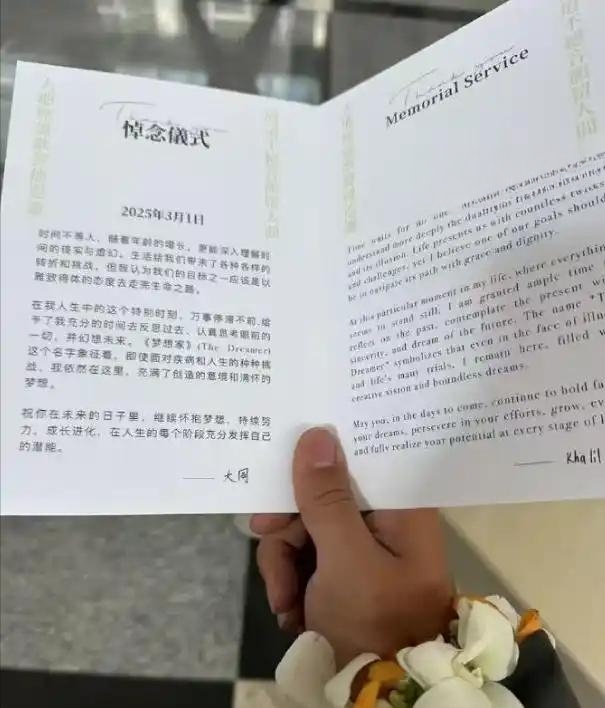 Thank you
悼念儀式
2025年3月1日
时间不等人，随着年龄的增长，更能深入理解时
间的核实与虚幻。生活给我们带来了各种各样的
转折和挑战，但我认为我们的目标之一应该是以
雅致得体的态度去走完生命之路。
在我人生中的这个特别时刻，万事停滞不前,给
予了我充分的时间去反思过去、认真思考眼前的
一切，并幻想未来。《梦想家》(The Dreamer)
这个名字象征着，即使面对疾病和人生的种种挑
战，我依然在这里，充满了创造的意境和满怀的
梦想。
祝你在未来的日子里，继续怀抱梦想，持续努
力，成长进化，在人生的每个阶段充分发挥自己
的潜能。
—— 大同
Thank you
Memorial Service
Time waits for no one.
understand more deeply the dualities
and its illusion. Life presents us with countless twists
and challenges, yet I believe one of our goals should
be to navigate its path with grace and dignity.
At this particular moment in my life, where everything
seems to stand still, I am granted ample time
reflect on the past, contemplate the present w
sincerity, and dream of the future. The name "T
Dreamer" symbolizes that even in the face of illn
and life's many trials, I remain here, filled w
creative vision and boundless dreams.
May you, in the days to come, continue to hold fa
your dreams, persevere in your efforts, grow, ev
and fully realize your potential at every stage of l
—— Khalil